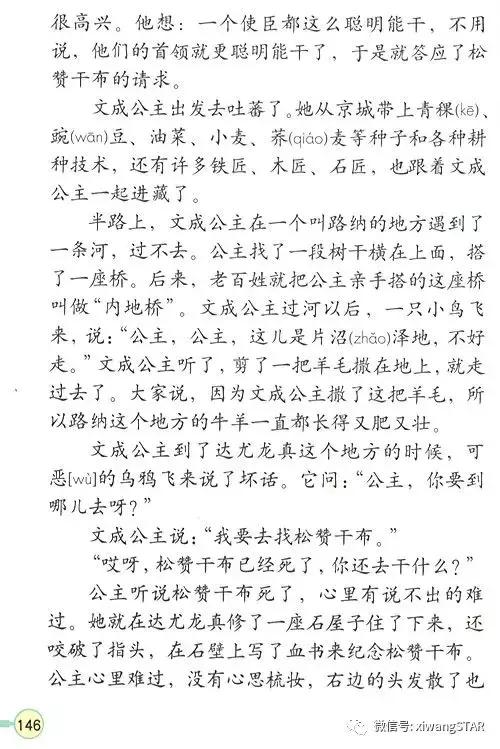 很高兴。他想：一个使臣都这么聪明能干，不用
说，他们的首领就更聪明能干了，于是就答应了松
赞干布的请求。
文成公主出发去吐蕃了。她从京城带上青稞(kē)、
豌(wān)豆、油菜、小麦、荞(qiáo)麦等种子和各种耕
种技术，还有许多铁匠、木匠、石匠，也跟着文成
公主一起进藏了。
半路上，文成公主在一个叫路纳的地方遇到了
一条河，过不去。公主找了一段树干横在上面，搭
了一座桥。后来，老百姓就把公主亲手搭的这座桥
叫做“内地桥”。文成公主过河以后，一只小鸟飞
来，说：“公主，公主，这儿是片沼(zhǎo)泽地，不好
走。”文成公主听了，剪了一把羊毛撒在地上，就走
过去了。大家说，因为文成公主撒了这把羊毛，所
以路纳这个地方的牛羊一直都长得又肥又壮。
文成公主到了达尤龙真这个地方的时候，可
恶[wù]的乌鸦飞来说了坏话。它问：“公主，你要到
哪儿去呀？”
文成公主说：“我要去找松赞干布。”
“哎呀，松赞干布已经死了，你还去干什么？”
公主听说松赞干布死了，心里有说不出的难
过。她就在达尤龙真修了一座石屋子住了下来，还
咬破了指头，在石壁上写了血书来纪念松赞干布。
公主心里难过，没有心思梳妆，右边的头发散了也
146
微信号: xiwangSTAR